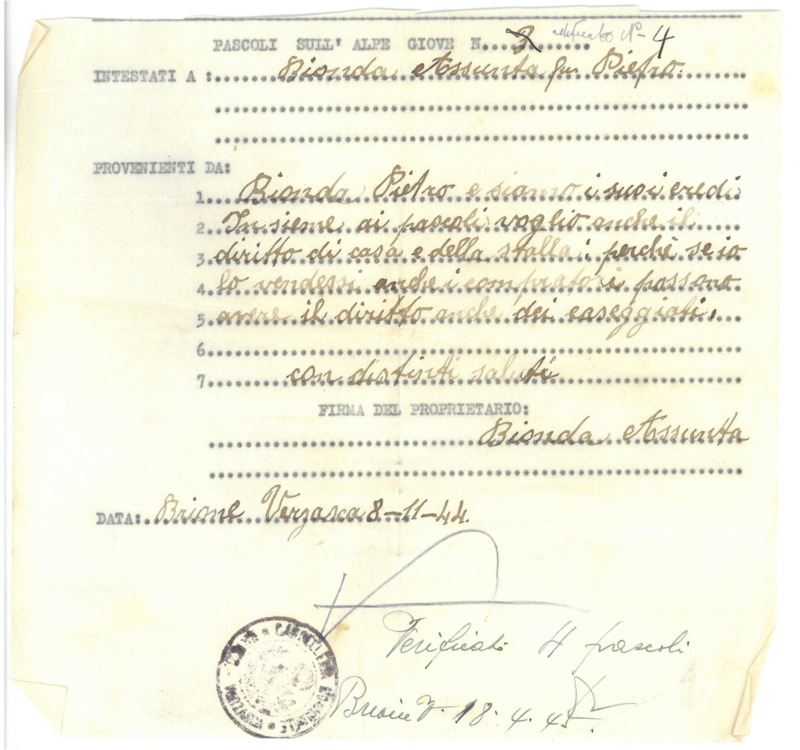 PASCOLI SULL' ALPE GIOVE N. 3 N- 4
INTESTATI A : Bionda Assunta fu Pietro.
PROVENIENTI DA:
1 Bionda Pietro e siamo i suoi eredi
2 Insieme ai pascoli voglio anche il
3 diritto di casa e della stalla; perchè se io
4 lo vendessi anche i compratori possono
5 avere il diritto anche dei caseggiati.
6
7 con distinti saluti
FIRMA DEL PROPRIETARIO:
Bionda Assunta
DATA: Brione Verzasca 8-11-44.
Verificati 4 pascoli
Brione V. 18.4.45.